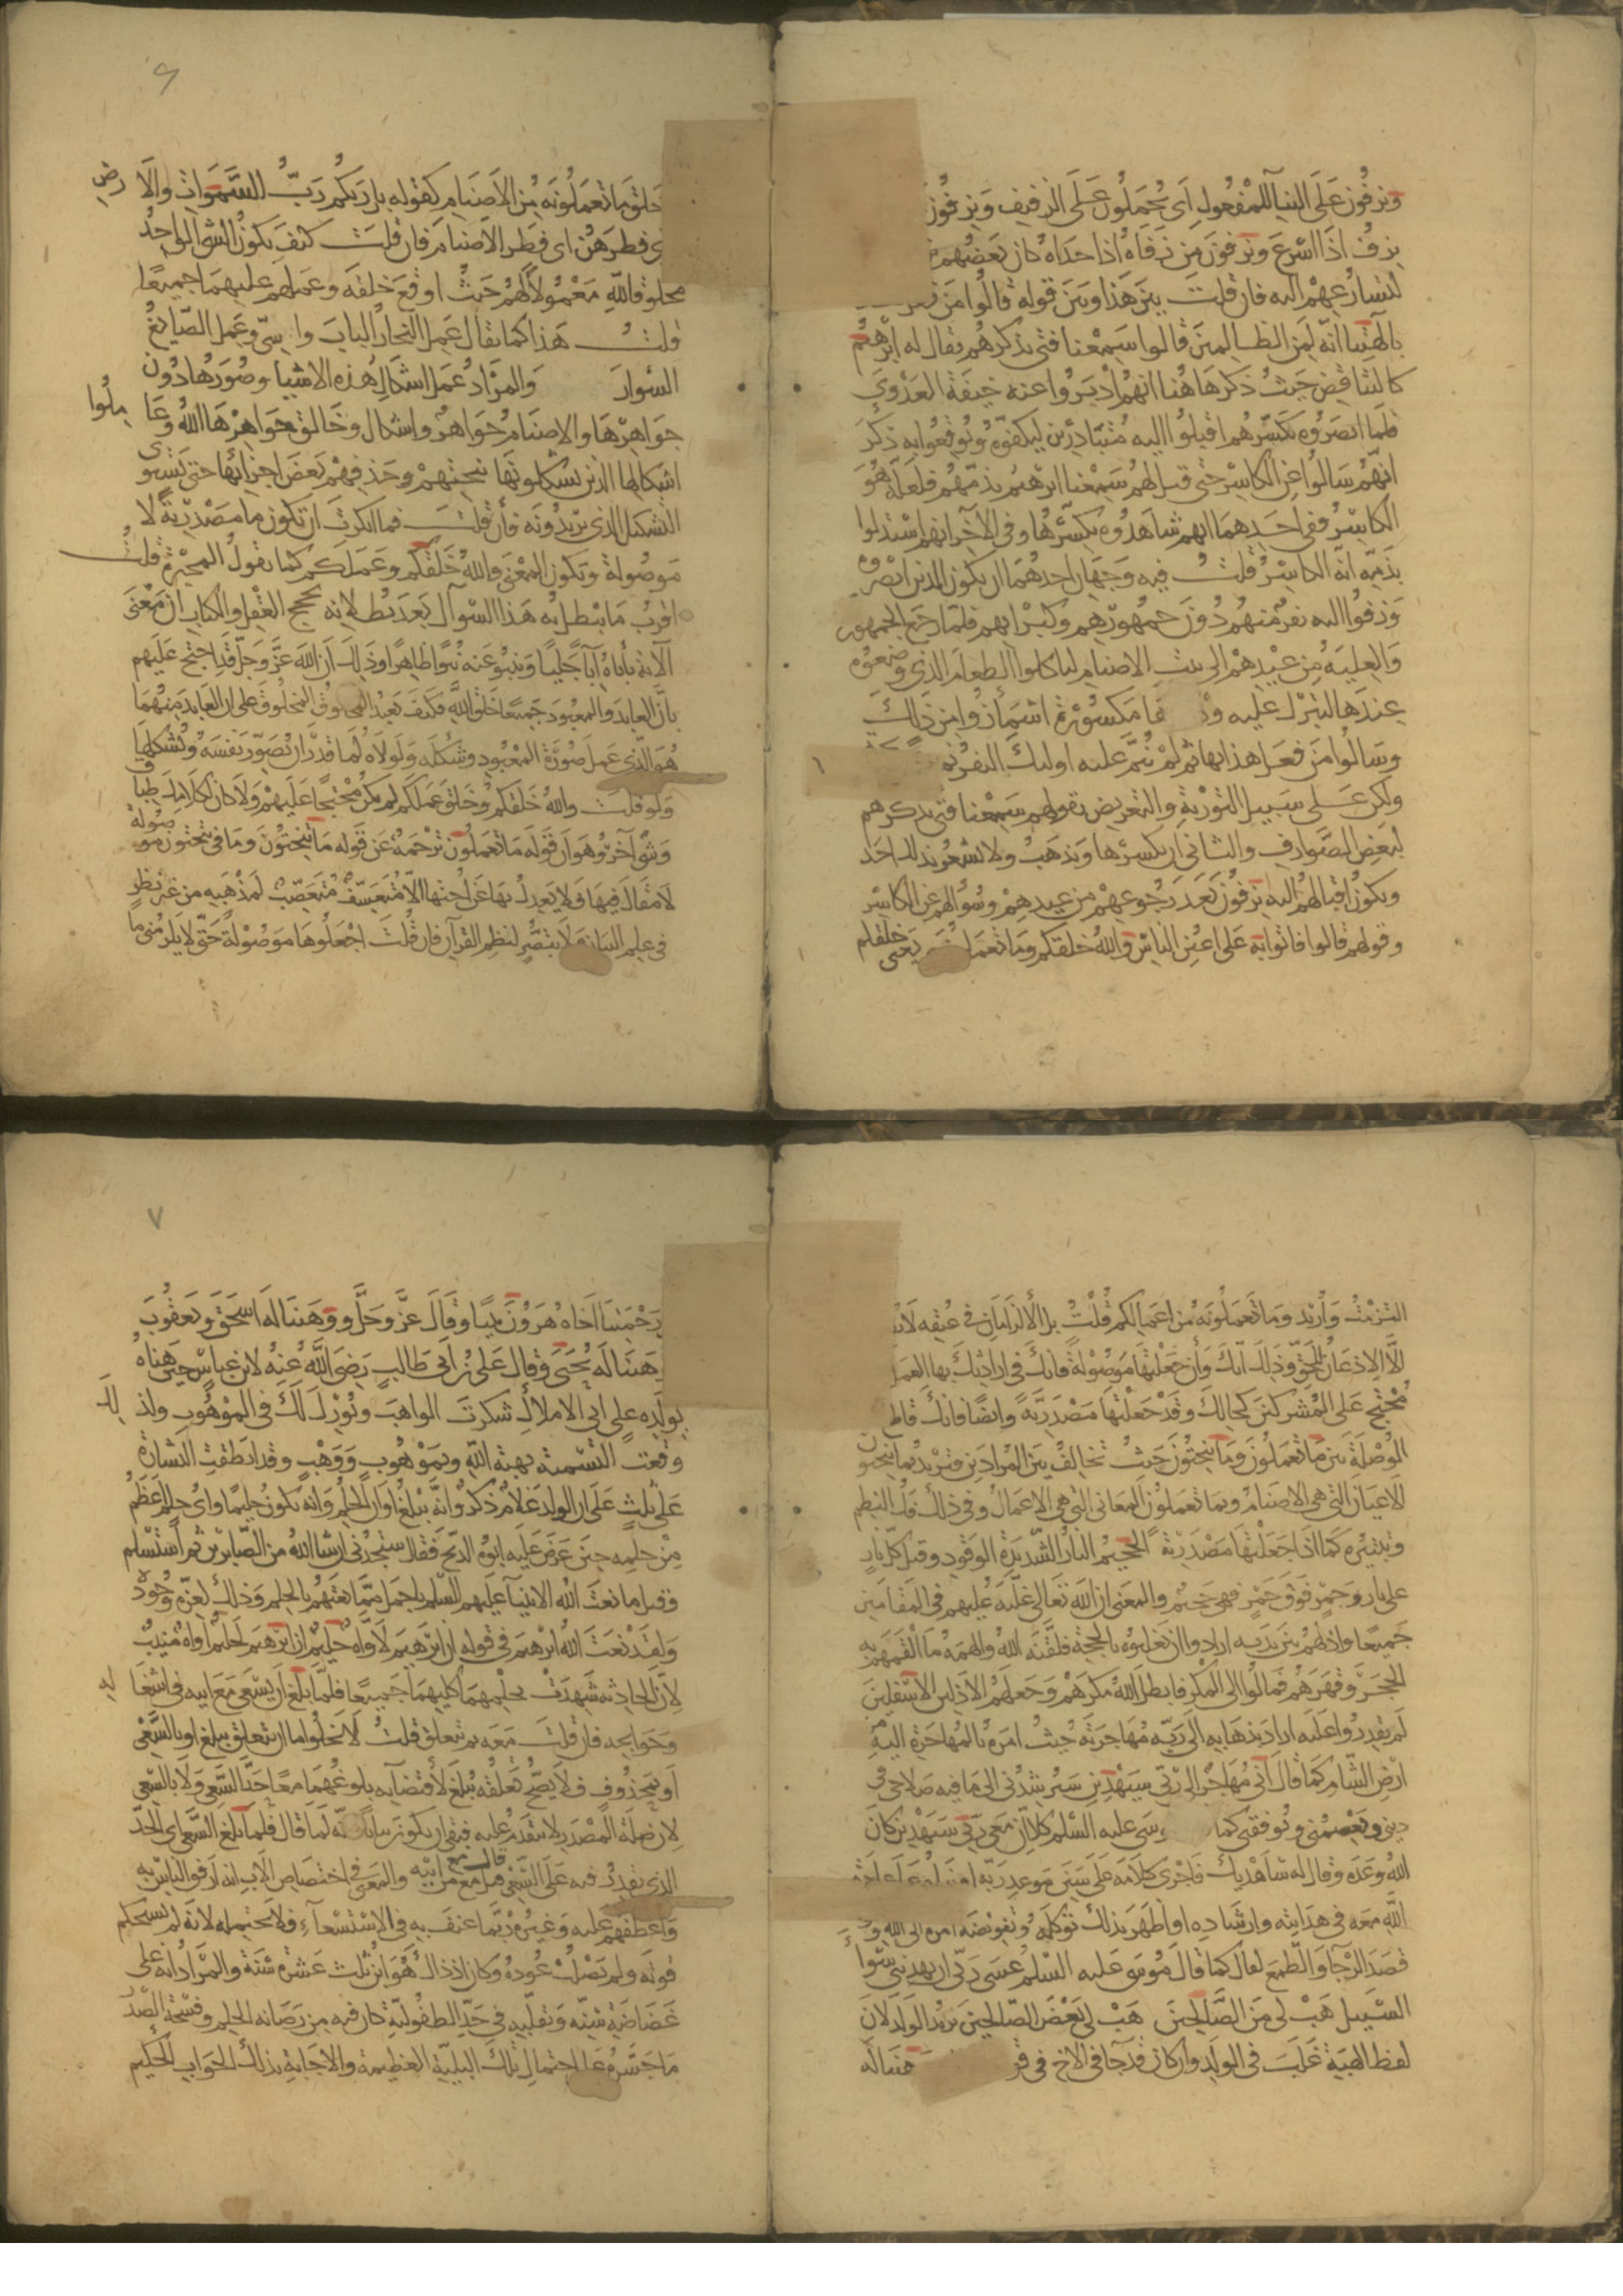 ويزفون على البناء للمفعول اى يحملون على الزفيف ويزفون
يزف اذا اسرع ويزفون من زفاه اذا حداه كان بعضهم
لتسارعهم اليه فان قلت بين هذا وبين قوله قالوا من فعل
بالهتنا انه لمن الظالمين قالوا سمعنا فتى يذكرهم يقال له ابرهيم
كالتناقض حيث ذكر هاهنا انهم ادبروا عنه خيفة العدوى
فلما ابصروه يكسرهم اقبلوا اليه متبادرين ليكفوه ويوقعوا به ذكر
انهم سالوا عن الكاسر حتى قيل لهم سمعنا ابرهيم يذمهم فلعله هو
الكاسر ففى احدهما انهم شاهدوه يكسرها وفى الآخر انهم استدلوا
بذمه انه الكاسر قلت فيه وجهان احدهما ان يكون الذين ابصروه
وزفوا اليه نفر منهم دون جمهورهم وكبرايهم فلما رجع الجمهور
والعلية من عيدهم الى بيت الاصنام لياكلوا الطعام الذى وضعوه
عندها لتبرك عليه و ها مكسورة اشمأزوا من ذلك
وسالوا من فعل هذا بها ثم لم ينم عليه اوليك النفر
ولكن على سبيل التورية والتعريض بقولهم سمعنا فتى يذكرهم
لبعض الصوارف والثانى ان يكسرها ويذهب ولا يشعر بذلك احد
ويكون اقبالهم اليه يزفون بعد رجوعهم من عيدهم وسؤالهم عن الكاسر
وقولهم قالوا فاتوا به على اعين الناس والله خلقكم وما تعملون يعنى خلقكم
٦
خلق ما تعملونه من الاصنام كقوله بل ربكم رب السموات والارض
فطرهن اى فطر الاصنام فان قلت كيف يكون الشى الواحد
مخلوقا لله معمولا لهم حيث اوقع خلقه وعملهم عليهما جميعا
قلت هذا كما يقال عمل النجار الباب والكرسى وعمل الصايغ
السوار والمراد عمل اشكال هذه الاشيا وصورها دون
جواهرها والاصنام جواهر واشكال وخالق جواهرها الله وعاملوا
اشكالها الذين يشكلونها بنحتهم وحذفهم بعض اجزائها حتى يستوى
التشكيل الذى يريدونه فان قلت فما انكرت ان تكون ما مصدرية لا
موصولة ويكون المعنى والله خلقكم وعملكم كما تقول المجبرة قلت
اقرب ما يبطل به هذا السوآل بعد بطلانه بحجج العقل والكتاب ان معنى
الآية يأباه اباءً جليا وينبو عنه نبوا ظاهرا وذلك ان الله عز وجل قد احتج عليهم
بان العابد والمعبود جميعا خلق الله فكيف يعبد المخلوق المخلوق على ان العابد منهما
هو الذى عمل صورة المعبود وشكله ولولاه لما قدر ان يصور نفسه ويشكلها
ولو قلت والله خلقكم وخلق عملكم لم يكن محتجا عليهم ولا كان لكلامك طباق
وشئ آخر وهو ان قوله ما تعملون ترجمة عن قوله ما تنحتون وما فى تنحتون موصولة
لا مقال فيها فلا يعدل بها عن اختها الا متعسف متعصب لمذهبه من غير نظر
فى علم البيان ولا تبصر لنظم القرآن فان قلت اجعلوها موصولة حتى لا يلزمنى ما
التزمت واريد وما تعملونه من اعمالكم قلت بل الالزامان فى عنقك لا
الا الاذعان للحق وذلك انك وان جعلتها موصولة فانك فى ارادتك بها العمل
محتج على المشركين كحالك وقد جعلتها مصدرية وايضا فانك قاطع
الوصلة بين ما تعملون وما تنحتون حيث تخالف بين المرادين فتريد بما تنحتون
الاعيان التى هى الاصنام وبما تعملون المعانى التى هى الاعمال وفى ذلك فك النظم
وتبتيره كما اذا جعلتها مصدرية الجحيم النار الشديدة الوقود وقيل كل نار
على نار وجمر فوق جمر فهى جحيم والمعنى ان الله تعالى غلبه عليهم فى المقامين
جميعا واذلهم بين يديه ارادوا ان يغلبوه بالحجة فلقنه الله والهمه ما القمهم به
الحجر وقهرهم فمالوا الى المكر فابطل الله مكرهم وجعلهم الاذلين الاسفلين
لم يقدروا عليه اراد بذهابه الى ربه مهاجرته حيث امره بالمهاجرة اليه من
ارض الشام كما قال انى مهاجر الى ربى سيهدين سيرشدنى الى ما فيه صلاحى فى
دينى ويعصمنى ويوفقنى كما موسى عليه السلم كلا ان معى ربى سيهدين كان
الله وعده وقال له ساهديك فاجرى كلامه على سنن موعد ربه
الله معه فى هدايته وارشاده او اظهر بذلك توكله وتفويضه امره الى الله
قصد الرجآ والطمع لقال كما قال موسى عليه السلم عسى ربى ان يهدينى سوآ
السبيل هب لى من الصالحين هب لى بعض الصالحين يريد الولد لان
لفظ الهبة غلب فى الولد وان كان قد جآ فى الاخ فى وهبنا له
٧
رحمتنا اخاه هرون نبيا وقال عز وجل ووهبنا له اسحق ويعقوب
وهبنا له يحيى وقال على بن ابى طالب رضى الله عنه لابن عباس حين هناه
بولده على ابى الاملاك شكرت الواهب وبورك لك فى الموهوب ولذلك
وقعت التسمية بهبة الله وبموهوب ووهب وقد انطقت البشارة
على ثلث على ان الولد غلام ذكر وانه يبلغ اوان الحلم وانه يكون حليما واى حلم اعظم
من حلمه حين عرض عليه ابوه الذبح فقال ستجدنى ان شا الله من الصابرين ثم استسلم
وقيل ما نعت الله الانبيآ عليهم السلم باجمل مما نعتهم بالحلم وذلك لعزة وجوده
ولقد نعت الله ابرهيم فى قوله ان ابرهيم لاواه حليم ان ابرهيم لحليم اواه منيب
لان الحادثة شهدت بحلمهما كليهما جميعا فلما بلغ ان يسعى مع ابيه فى اشغاله
وحوايجه فان قلت معه بم يتعلق قلت لا يخلو اما ان يتعلق ببلغ او بالسعى
او بمحذوف فلا يصح تعلقه ببلغ لاقتضآيه بلوغهما معا حد السعى ولا بالسعى
لان صلة المصدر لا يتقدم عليه فبقى ان يكون بيانا كانه لما قال فلما بلغ السعى اى الحد
الذى يقدر فيه على السعى قيل مع من قال مع ابيه والمعنى فى اختصاص الاب انه ارفق الناس به
واعطفهم عليه وغيره ربما عنف به فى الاستسعآء فلا يحتمله لانه لم يستحكم
قوته ولم يصلب عوده وكان اذ ذاك هو ابن ثلث عشرة سنة والمراد انه على
غضاضة سنه وتقلبه فى حد الطفولية كان فيه من رصانه الحلم وفسحة الصدر
ما جسره على احتمال تلك البلية العظيمة والاجابة بذلك الجواب الحكيم